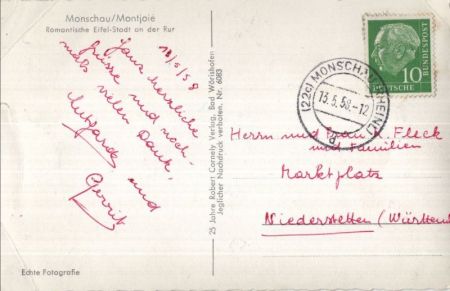 Monschau/Montjoie
Romantische Eifel-Stadt an der Rur
12/5/58
Ganz herzliche
Grüsse und noch-
mals vielen Dank,
Lutgarde und
Gerrit
Echte Fotografie
25 Jahre Robert Cornely Verlag, Bad Wörishofen
Jeglicher Nachdruck verboten. Nr. 6083
(22c) MONSCHAU (RHEINL)
13.5.58.-12
d
10
DEUTSCHE
BUNDESPOST
Herrn und Frau Fleck
und Familien
Marktplatz
Niederstetten (Württem